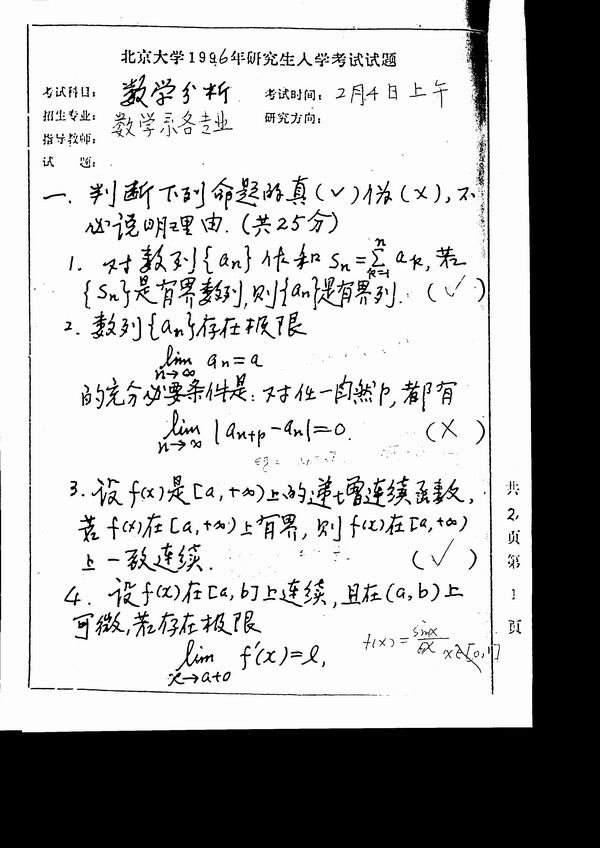 北京大学1996年研究生入学考试试题
考试科目: 数学分析 考试时间: 2月4日上午
招生专业: 数学系各专业 研究方向:
指导教师:
试 题:
一. 判断下列命题的真(√)伪(×), 不
必说明理由. (共25分)
1. 对数列{an}作和 Sn=∑_{k=1}^{n} ak, 若
{Sn}是有界数列, 则{an}是有界列. (√)
2. 数列{an}存在极限
lim_{n→∞} an=a
的充分必要条件是: 对任一自然p, 都有
lim_{n→∞} |an+p-an|=0. (×)
3. 设f(x)是[a,+∞)上的递增连续函数,
若f(x)在[a,+∞)上有界, 则f(x)在[a,+∞)
上一致连续. (√)
4. 设f(x)在[a,b]上连续, 且在(a,b)上
可微, 若存在极限
f(x)=sinx/
lim_{x→a+0} f'(x)=l,
共2页第1页